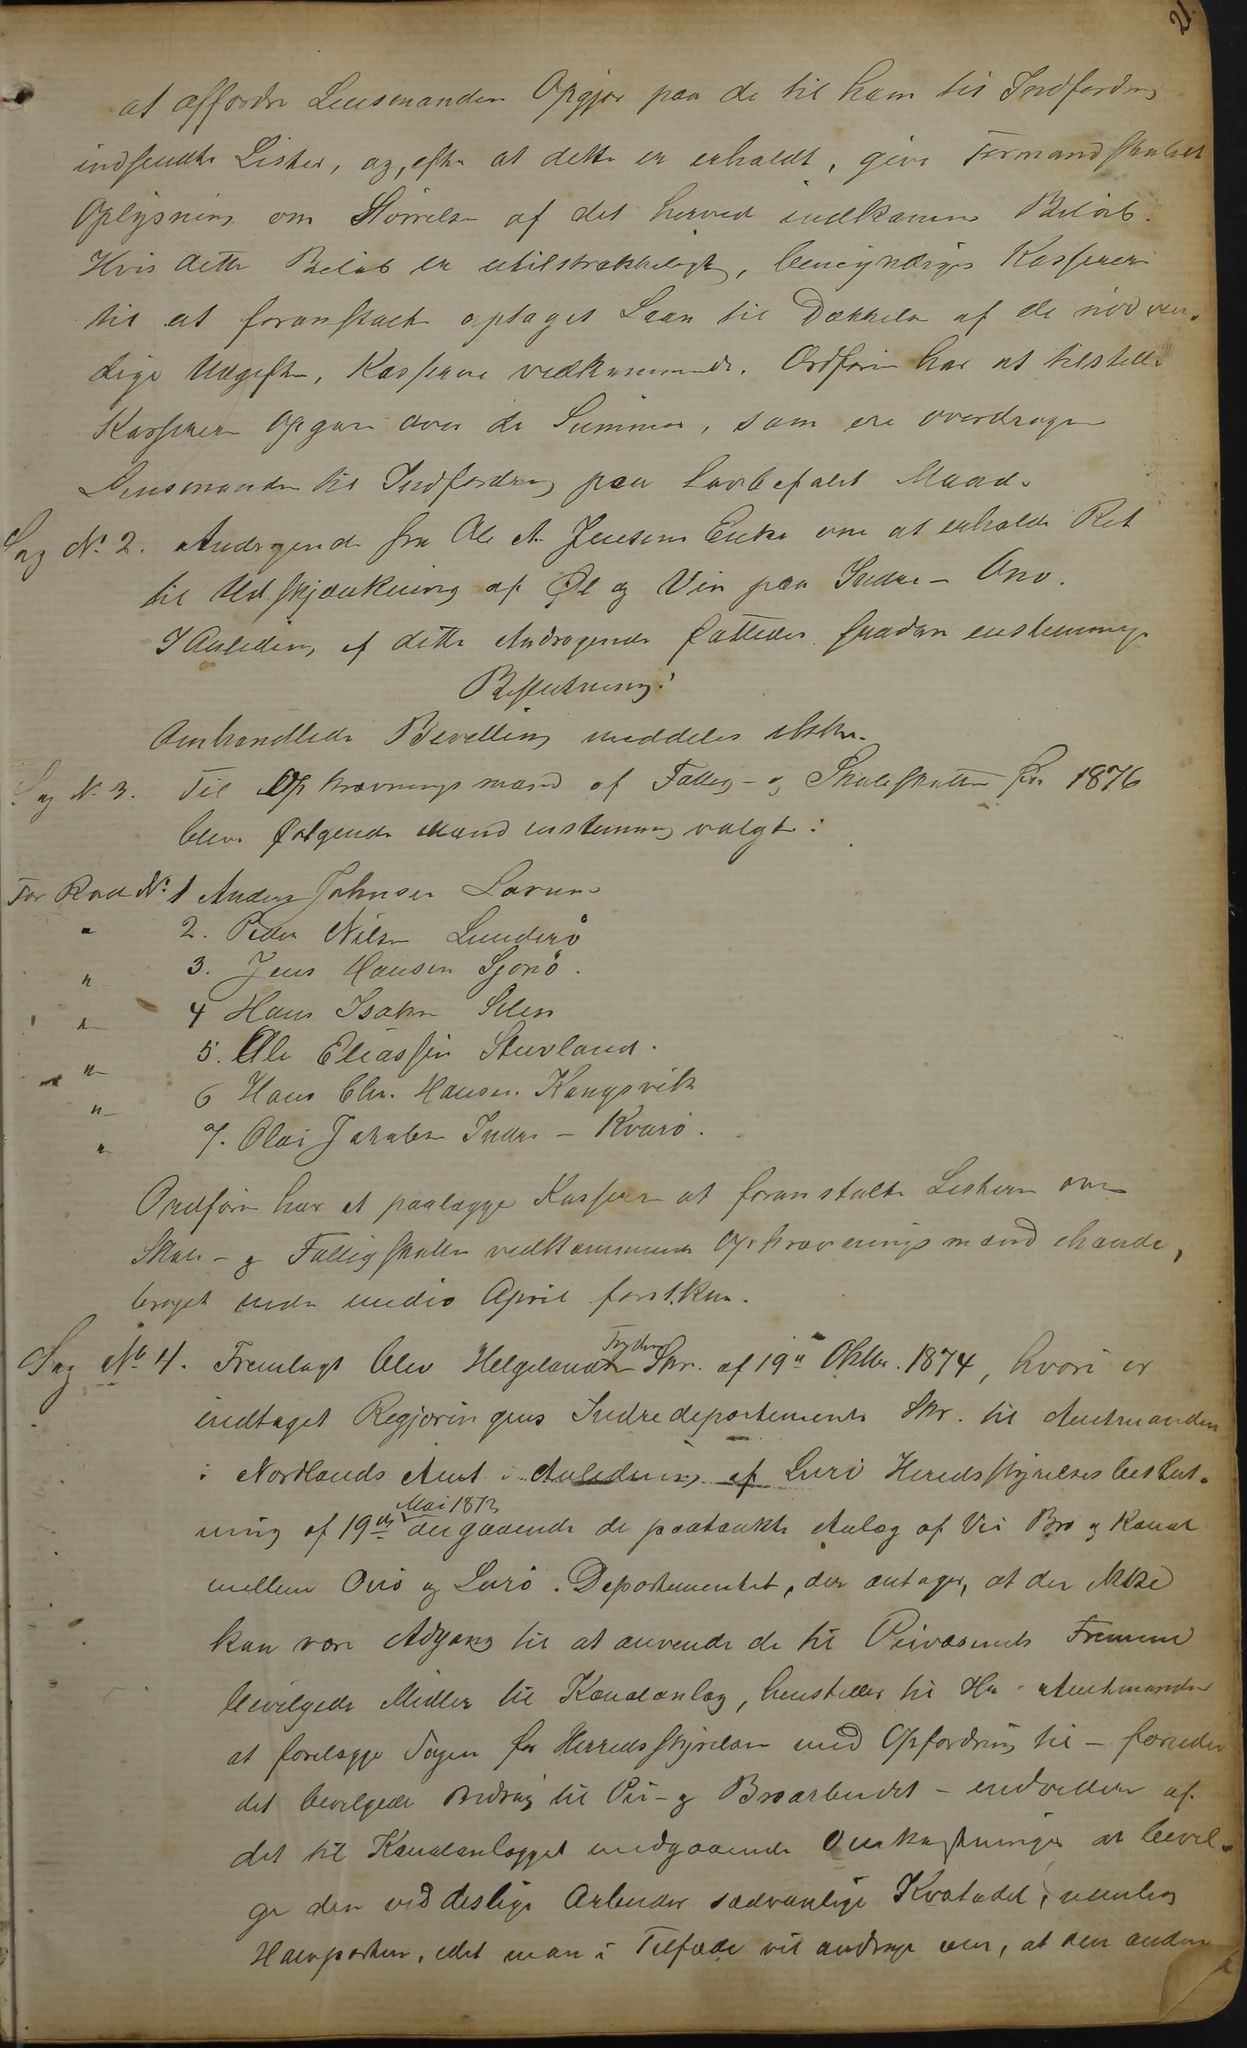 21.
at affordre Lensmanden Opgjør paa de til ham til Indfordring
indsendte Lister, og, efter at dette er erholdt, give Formandskabet
Oplysning om Størrelsen af det herved indkomne Beløb.
Hvis dette Beløb er utilstrækkeligt, bemyndiges Kasserer
til at foranstalte optaget Laan til Dækkelse af de nødven-
dige Udgifter, Kasserer vedkommende. Ordfører har at tilstille
Kassereren Opgave over de Summer, som ere overdragne
Lensmanden til Indfordring paa lovbefalet Maade.
Sag No 2. Andragende fra Ole A. Jensens Enke om at erholde Ret
til Udskjænkning af Øl og Vin paa Indre-Onø.
I Anledning af dette Andragende fattedes saadan enstemmig
Beslutning:
Omhandlede Bevilling meddeles ikke.
Sag No 3. Til Opkrævningsmænd af Fattig- og Skoleskatten for 1876
blev følgende Mænd enstemmig valgte:
For Rode No 1 Anders Johnsen Lovund
" 2. Peder Nilsen Lunderø
" 3. Jens Hansen Sjonø.
" 4 Hans Isaksen Selen
" 5. Ole Eliassen Stuvland.
" 6 Hans Chr. Hansen Kongsvik
" 7. Olai Jakobsen Indre-Kvarø.
Ordfører har at paalægge Kasserer at foranstalte Listerne over
Skole- og Fattigskatten vedkommende Opkrævningsmænd ihænde,
bragt inden medio April førstk.
Sag No 4. Fremlagt blev Helgelands Fogderi Skr. af 19de Oktbr. 1874, hvori er
indtaget Regjeringens Indredepartements Skr. til Amtmanden
i Nordlands Amt i Anledning af Lurø Heredsstyrelses beslut-
ning af 19de Mai 1873 angaaende de paatænkte Anlæg af Vei Bro og Kanal
mellem Onø og Lurø. Departementet, der antager, at der ikke
kan være Adgang til at anvende de til Veivæsenets Fremme
bevilgede Midler til Kanalanlæg, henstiller til Hr. Amtmanden
at forelægge Sagen for Herredsstyrelsen med Opfordring til – foruden
det bevilgede Bidrag til Vei- og Broarbeidet – endvidere af
det til Kanalanlægget medgaaende Omkostninger at bevil-
ge den ved deslige Arbeider sædvanlige Kvotadel, nemlig
Halvparten, idet man i Tilfælde vil andrage om, at den anden